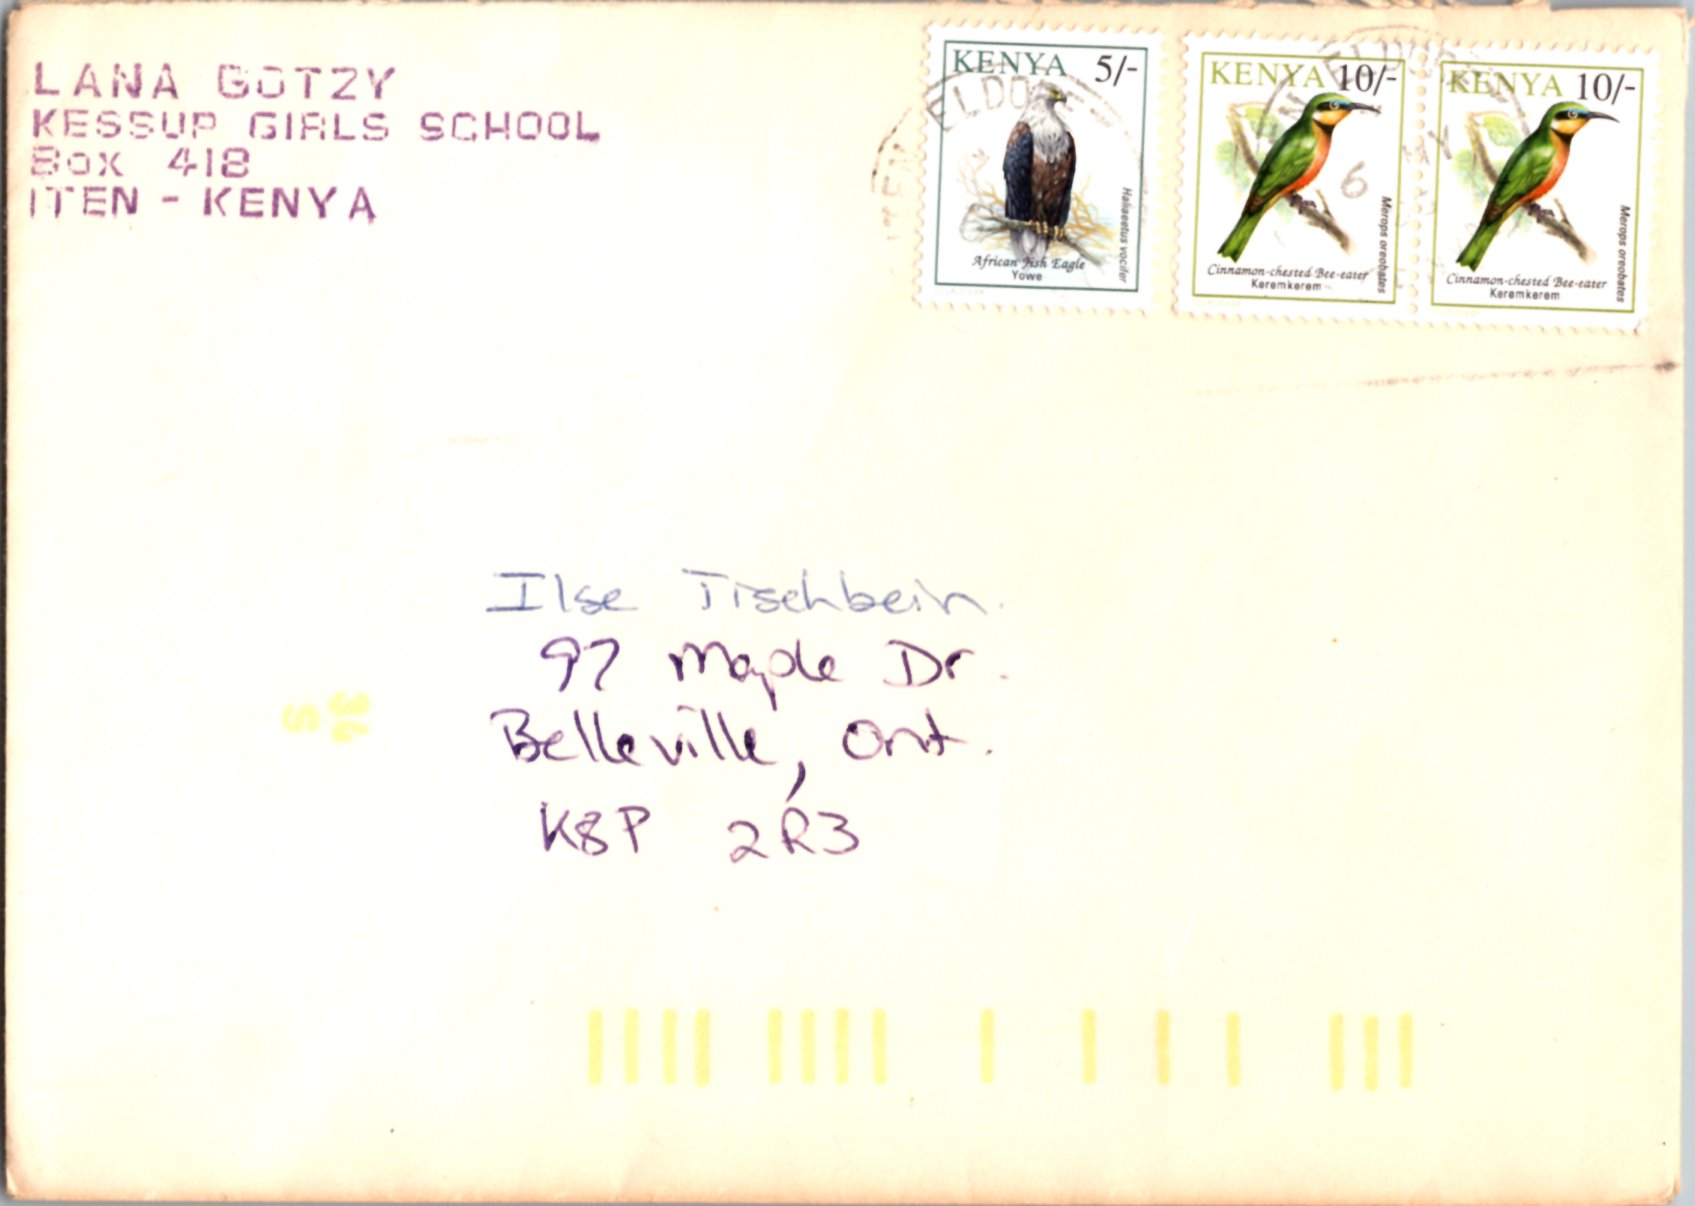 LANA GOTZY
KESSUP GIRLS SCHOOL
Box 418
ITEN - KENYA
KENYA 5/-
African Fish Eagle
Yowe
Haliaeetus vocifer
KENYA 10/-
Cinnamon-chested Bee-eater
Keremkerem
Merops oreobates
KENYA 10/-
Cinnamon-chested Bee-eater
Keremkerem
Merops oreobates
6
Ilse Tischbein.
97 Maple Dr.
Belleville, Ont.
K8P 2R3
36
S